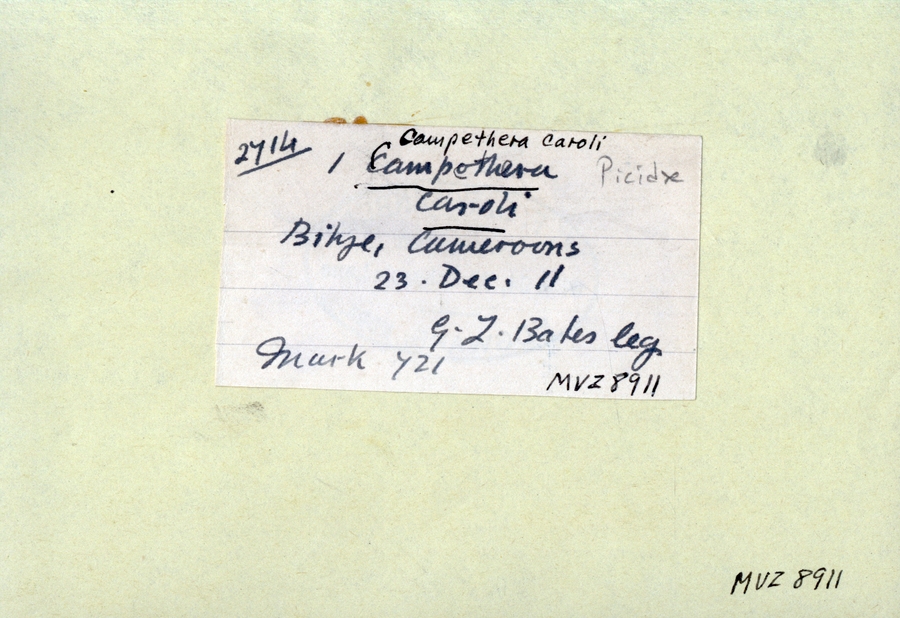 Campethera caroli
2714
1 Campothera Picidae
Caroli
Bitye, Cameroons
23. Dec. 11
G. L. Bates leg.
Mark 721
MVZ 8911
MVZ 8911